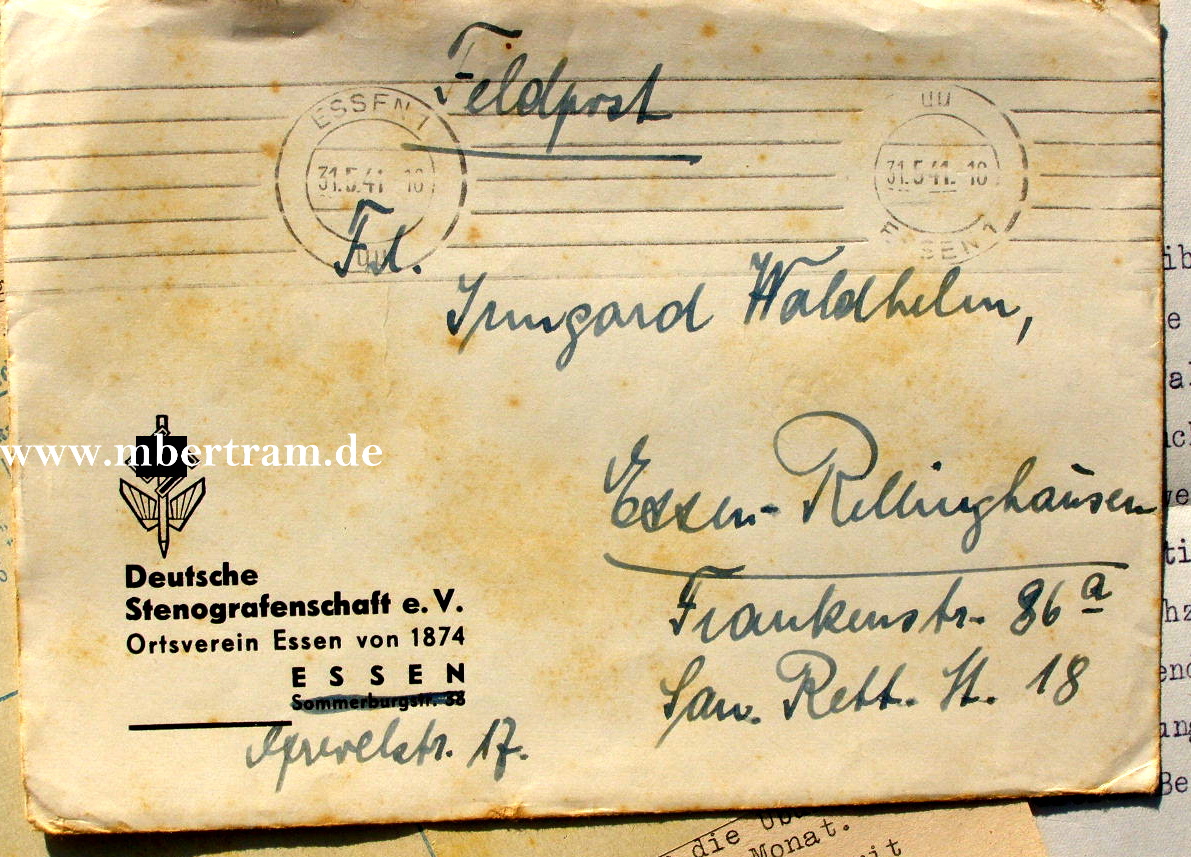 Feldpost
ESSEN 1
31.5.41-18
uu
uu
31.5.41.-18
ESSEN 1
Frl.
Irmgard Waldhelm,
Essen-Rellinghausen
Frankenstr. 86 a
San. Rett. St. 18
www.mbertram.de
Deutsche
Stenografenschaft e.V.
Ortsverein Essen von 1874
ESSEN
Sommerburgstr. 38
17.
die
Monat.